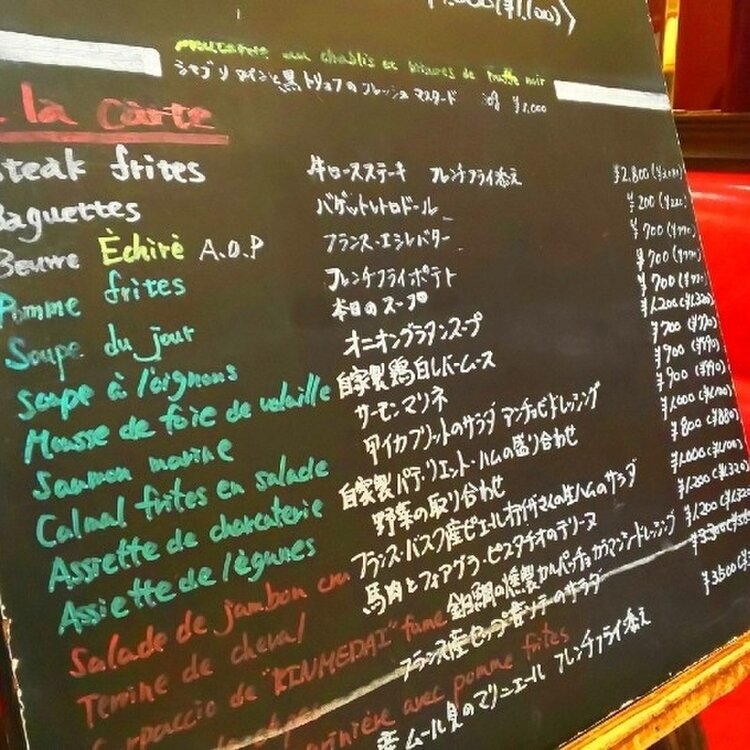 (¥1,100)
moutarme aux chablis et brisures de truffe noir
シャブリ ワインと黒トリュフのフレッシュ マスタード 30g ¥1,000
la carte
Steak frites 牛ロースステーキ フレンチフライ添え ¥2,800
Baguettes バゲットレトロドール ¥200(¥220)
Beurre Èchirè A.O.P フランス・エシレバター ¥700(¥770)
Pomme frites フレンチフライポテト ¥700(¥770)
Soupe du jour 本日のスープ ¥700(¥770)
Soupe à l'oignons オニオングラタンスープ ¥1,200(¥1,320)
Mousse de foie de volaille 自家製鶏白レバームース ¥700(¥770)
Saumon marine サーモンマリネ ¥900(¥990)
Calmal frites en salade 甲イカフリットのサラダ アンチョビドレッシング ¥900(¥990)
Assiette de charcaterie 自家製パテ・リエット・ハムの盛り合わせ ¥1,000(¥1,100)
Assiette de légumes 野菜の取り合わせ ¥800(¥880)
Salade de jambon cru フランス・バスク産ピエールオテイザさんの生ハムのサラダ ¥1,000(¥1,100)
Terrine de cheval 馬肉とフォアグラ・ピスタチオのテリーヌ ¥1,200(¥1,320)
Carpaccio de "KINMEDAI" fumé 金目鯛の燻製カルパッチョ ドレッシング ¥1,200
フランス産セップ茸ソテーのサラダ
marinière avec pomme frites ¥3,500
産ムール貝のマリニエール フレンチフライ添え